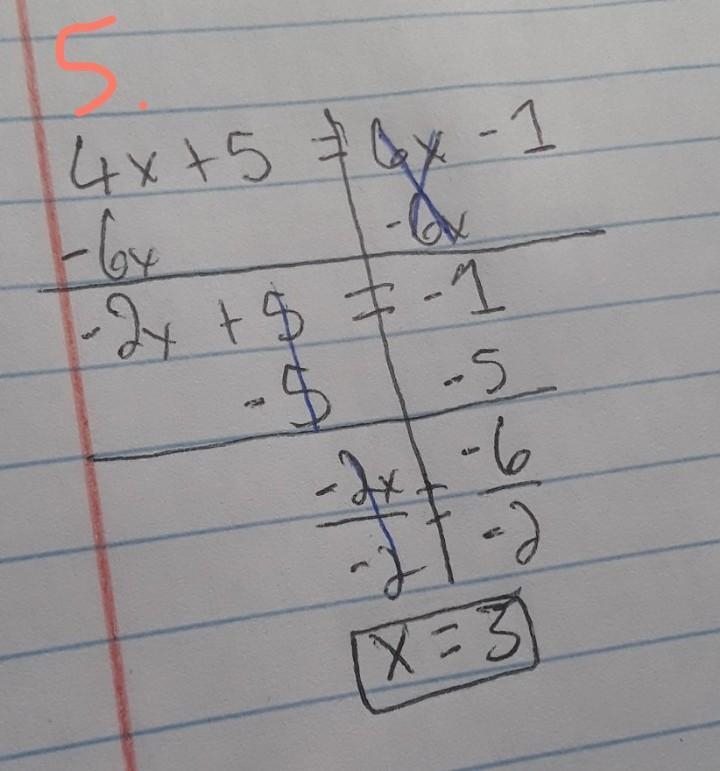 5.
4x + 5 = 6x - 1
-6x -6x
-2x + 5 = -1
-5 -5
-2x = -6
-2 -2
x = 3